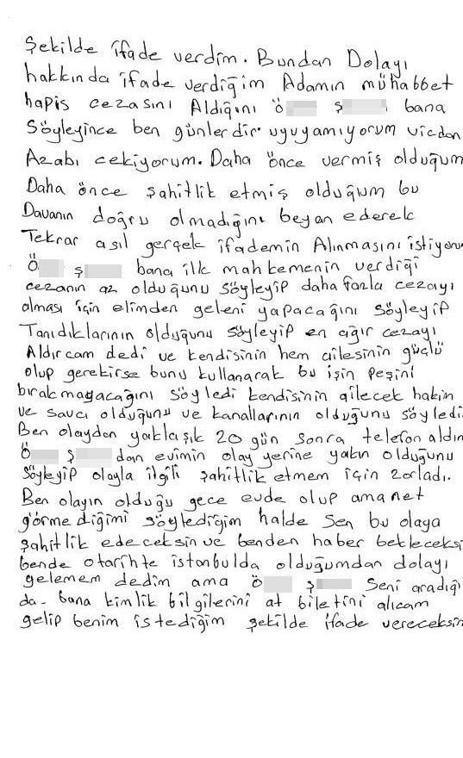 Şekilde ifade verdim. Bundan Dolayı
hakkında ifade verdiğim Adamın mühabbet
hapis cezasını Aldığını Ö Ş bana
Söyleyince ben günlerdir uyuyamıyorum vicdan
Azabı cekiyorum. Daha önce vermiş olduğum
Daha önce şahitlik etmiş olduğum bu
Davanın doğru olmadığını beyan ederek
Tekrar asıl gerçek ifademin Alınmasını istiyoru
Ö Ş bana ilk mahkemenin verdiği
cezanın az olduğunu söyleyip daha fazla cezayı
alması için elimden geleni yapacağını söyleyip
Tanıdıklarının olduğunu söyleyip en ağır cezayı
Aldırcam dedi ve kendisinin hem ailesinin güçlü
olup gerekirse bunu kullanarak bu işin peşini
bırakmayacağını söyledi kendisinin ailecek hakim
ve savcı olduğunu ve kanallarının olduğunu söyledi
Ben olaydan yaklaşık 20 gün sonra telefon aldım
Ö Ş dan evimin olay yerine yakın olduğunu
söyleyip olayla ilgili şahitlik etmem için zorladı.
Ben olayın olduğu gece evde olup ama net
görmediğimi söylediğim halde sen bu olaya
şahitlik edeceksin ve benden haber bekleceksi
bende o tarihte istanbulda olduğumdan dolayı
gelemem dedim ama Ö Ş Seni aradığı
da. bana kimlik bilgilerini at biletini alıcam
gelip benim istediğim şekilde ifade vereceksin